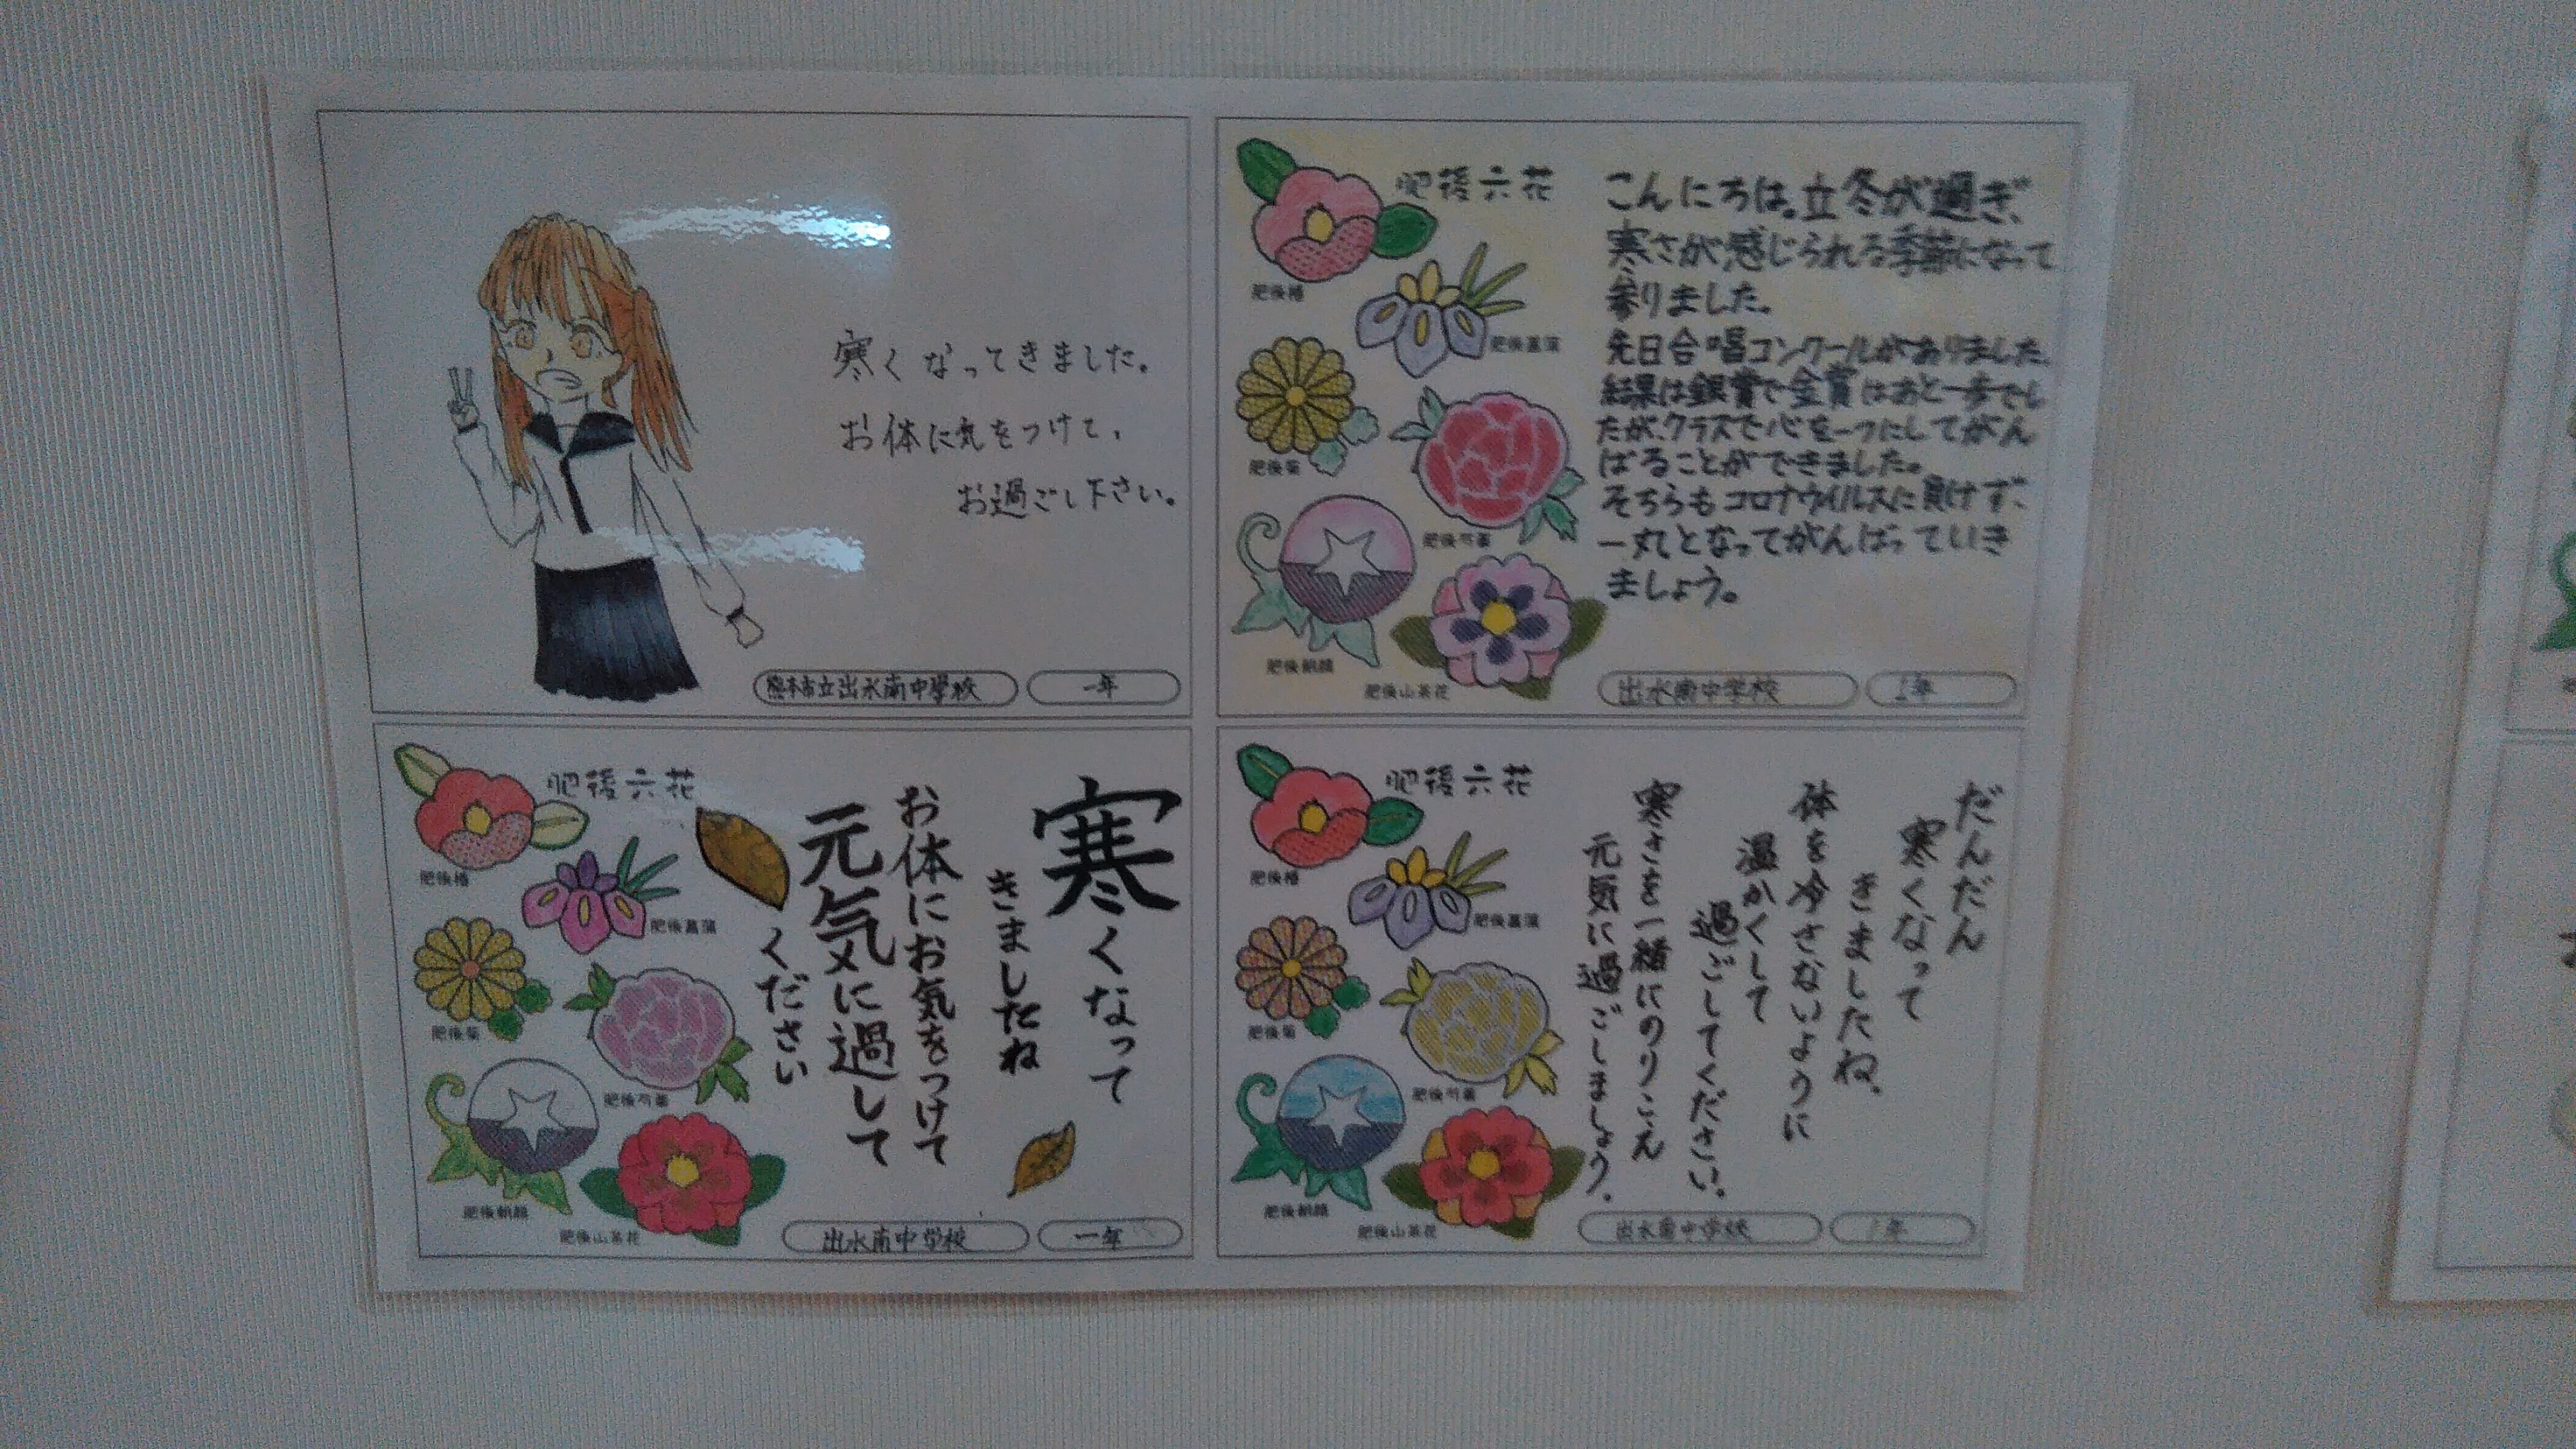 寒くなってきました。
お体に気をつけて、
お過ごし下さい。
熊本市立出水南中学校
一年
肥後六花
肥後椿
肥後菖蒲
肥後菊
肥後芍薬
肥後朝顔
肥後山茶花
こんにちは。立冬が過ぎ、
寒さが感じられる季節になって
参りました。
先日合唱コンクールがありました。
結果は銀賞で金賞はあと一歩でし
たが、クラスで心を一つにしてがん
ばることができました。
そちらもコロナウイルスに負けず、
一丸となってがんばっていき
ましょう。
出水南中学校
1年
肥後六花
肥後椿
肥後菖蒲
肥後菊
肥後芍薬
肥後朝顔
肥後山茶花
寒くなって
きましたね
お体にお気をつけて
元気に過して
ください
出水南中学校
一年
肥後六花
肥後椿
肥後菖蒲
肥後菊
肥後芍薬
肥後朝顔
肥後山茶花
だんだん
寒くなって
きましたね。
体を冷さないように
温かくして
過ごしてください。
寒さを一緒にのりこえ
元気に過ごしましょう。
出水南中学校
1年